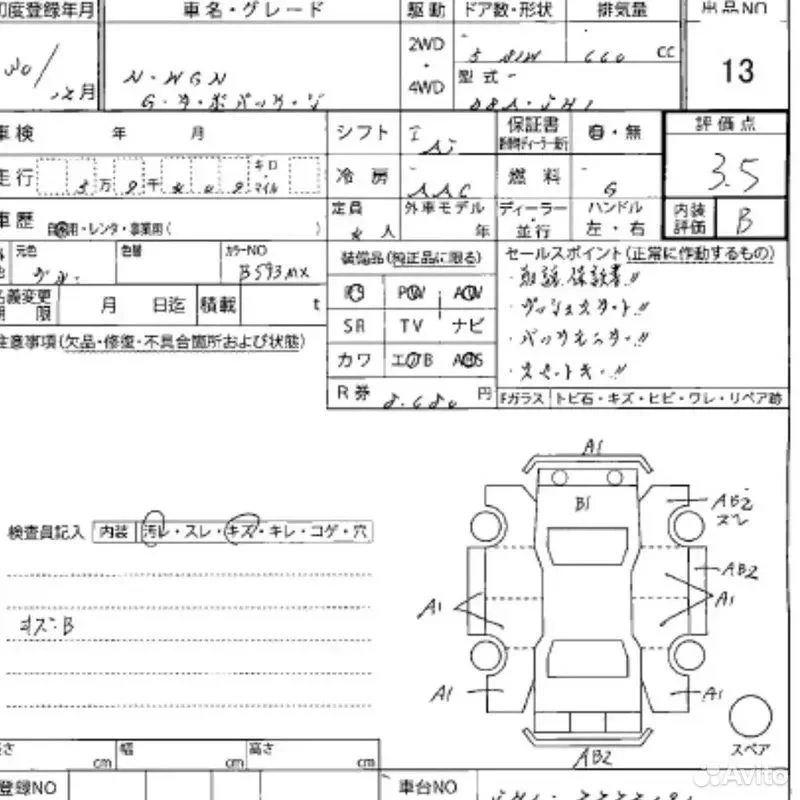 初度登録年月 車名・グレード 駆動 ドア数・形状 排気量 出品NO
30/ 月 N-WGN 2WD・4WD 5 660 cc 13
G・ターボパッケージ 型式 DBA-JH1
車検 年 月 シフト IAT 保証書 有・無 評価点
走行 万 千 キロ マイル 冷房 AAC 燃料 G 3.5
車歴 自家用・レンタ・事業用( ) 定員 4人 外車モデル 年 ディーラー・並行 ハンドル 左・右 内装評価 B
元色 色替 カラーNO B593MX
装備品(純正品に限る) セールスポイント(正常に作動するもの)
名義変更期限 月 日迄 積載 t
PS PW AW ・取説.保証書!!
SR TV ナビ ・プッシュスタート!!
注意事項(欠品・修復・不具合箇所および状態)
カワ エアB ABS ・バックモニター!!
・スマートキー!!
R券 8.680 円 Fガラス トビ石・キズ・ヒビ・ワレ・リペア跡
A1
B1
AB2
スレ
検査員記入 内装 汚レ・スレ・キズ・キレ・コゲ・穴
AB2
A1 A1
キズ・B
A1 A1
スペア
AB2
長さ cm 幅 cm 高さ cm
登録NO 車台NO JH1-
Avito